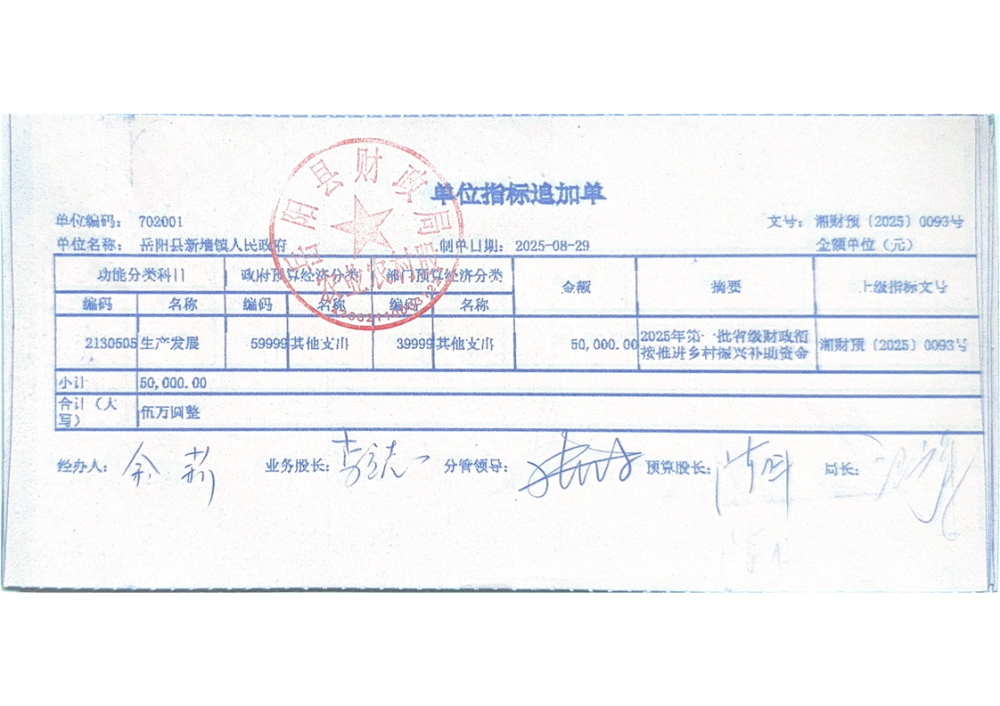 单位指标追加单
单位编码: 702001
文号: 湘财预〔2025〕0093号
单位名称: 岳阳县新墙镇人民政府
制单日期: 2025-08-29
金额单位(元)
功能分类科目 政府预算经济分类 部门预算经济分类 金额 摘要 上级指标文号
编码 名称 编码 名称 编码 名称
2130505 生产发展 59999 其他支出 39999 其他支出 50,000.00 2025年第一批省级财政衔
接推进乡村振兴补助资金 湘财预〔2025〕0093号
小计 50,000.00
合计(大
写) 伍万圆整
经办人: 余 莉 业务股长: 分管领导: 预算股长: 局长:
岳阳县财政局
农村股